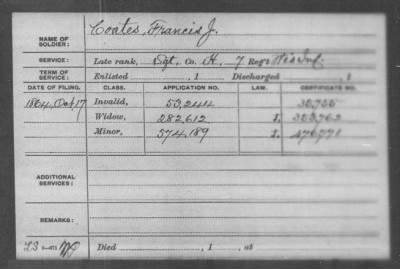 NAME OF SOLDIER: Coates, Francis J.
SERVICE: Late rank, Sgt, Co. H, 7 Reg't Wis Inf.
TERM OF SERVICE: Enlisted , 1 Discharged , 1
DATE OF FILING. CLASS. APPLICATION NO. LAW. CERTIFICATE NO.
1864, Oct, 17 Invalid, 53,244
Widow, 282,612
Minor, 574,189
ADDITIONAL SERVICES:
REMARKS:
Died , 1 , at